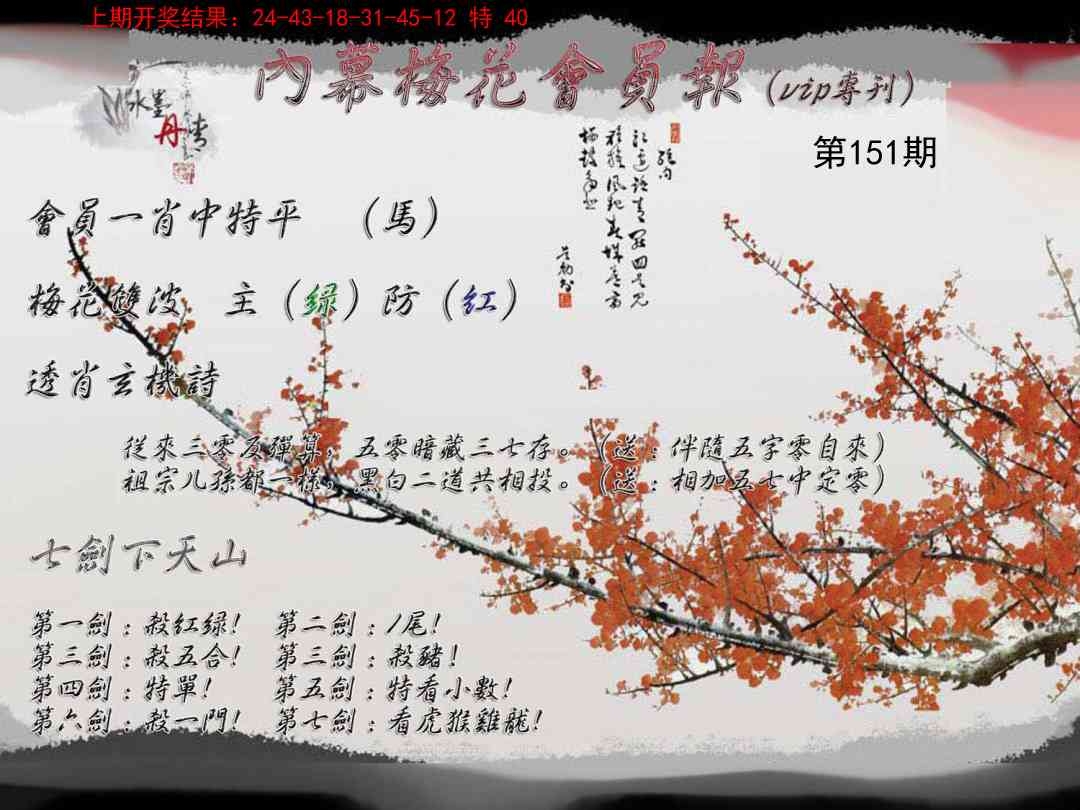 上期开奖结果：24-43-18-31-45-12 特 40
內幕梅花會員報（vip專刊）
水墨
丹青
第151期
會員一肖中特平 （馬）
梅花雙波 主（綠）防（紅）
透肖玄機詩
從來三零反彈算，五零暗藏三七存。（送：伴隨五字零自來）
祖宗儿孫都一樣，黑白二道共相投。（送：相加五七中定零）
七劍下天山
第一劍：殺紅綠！ 第二劍：1尾！
第三劍：殺五合！ 第三劍：殺豬！
第四劍：特單！ 第五劍：特看小數！
第六劍：殺一門！ 第七劍：看虎猴雞龍！